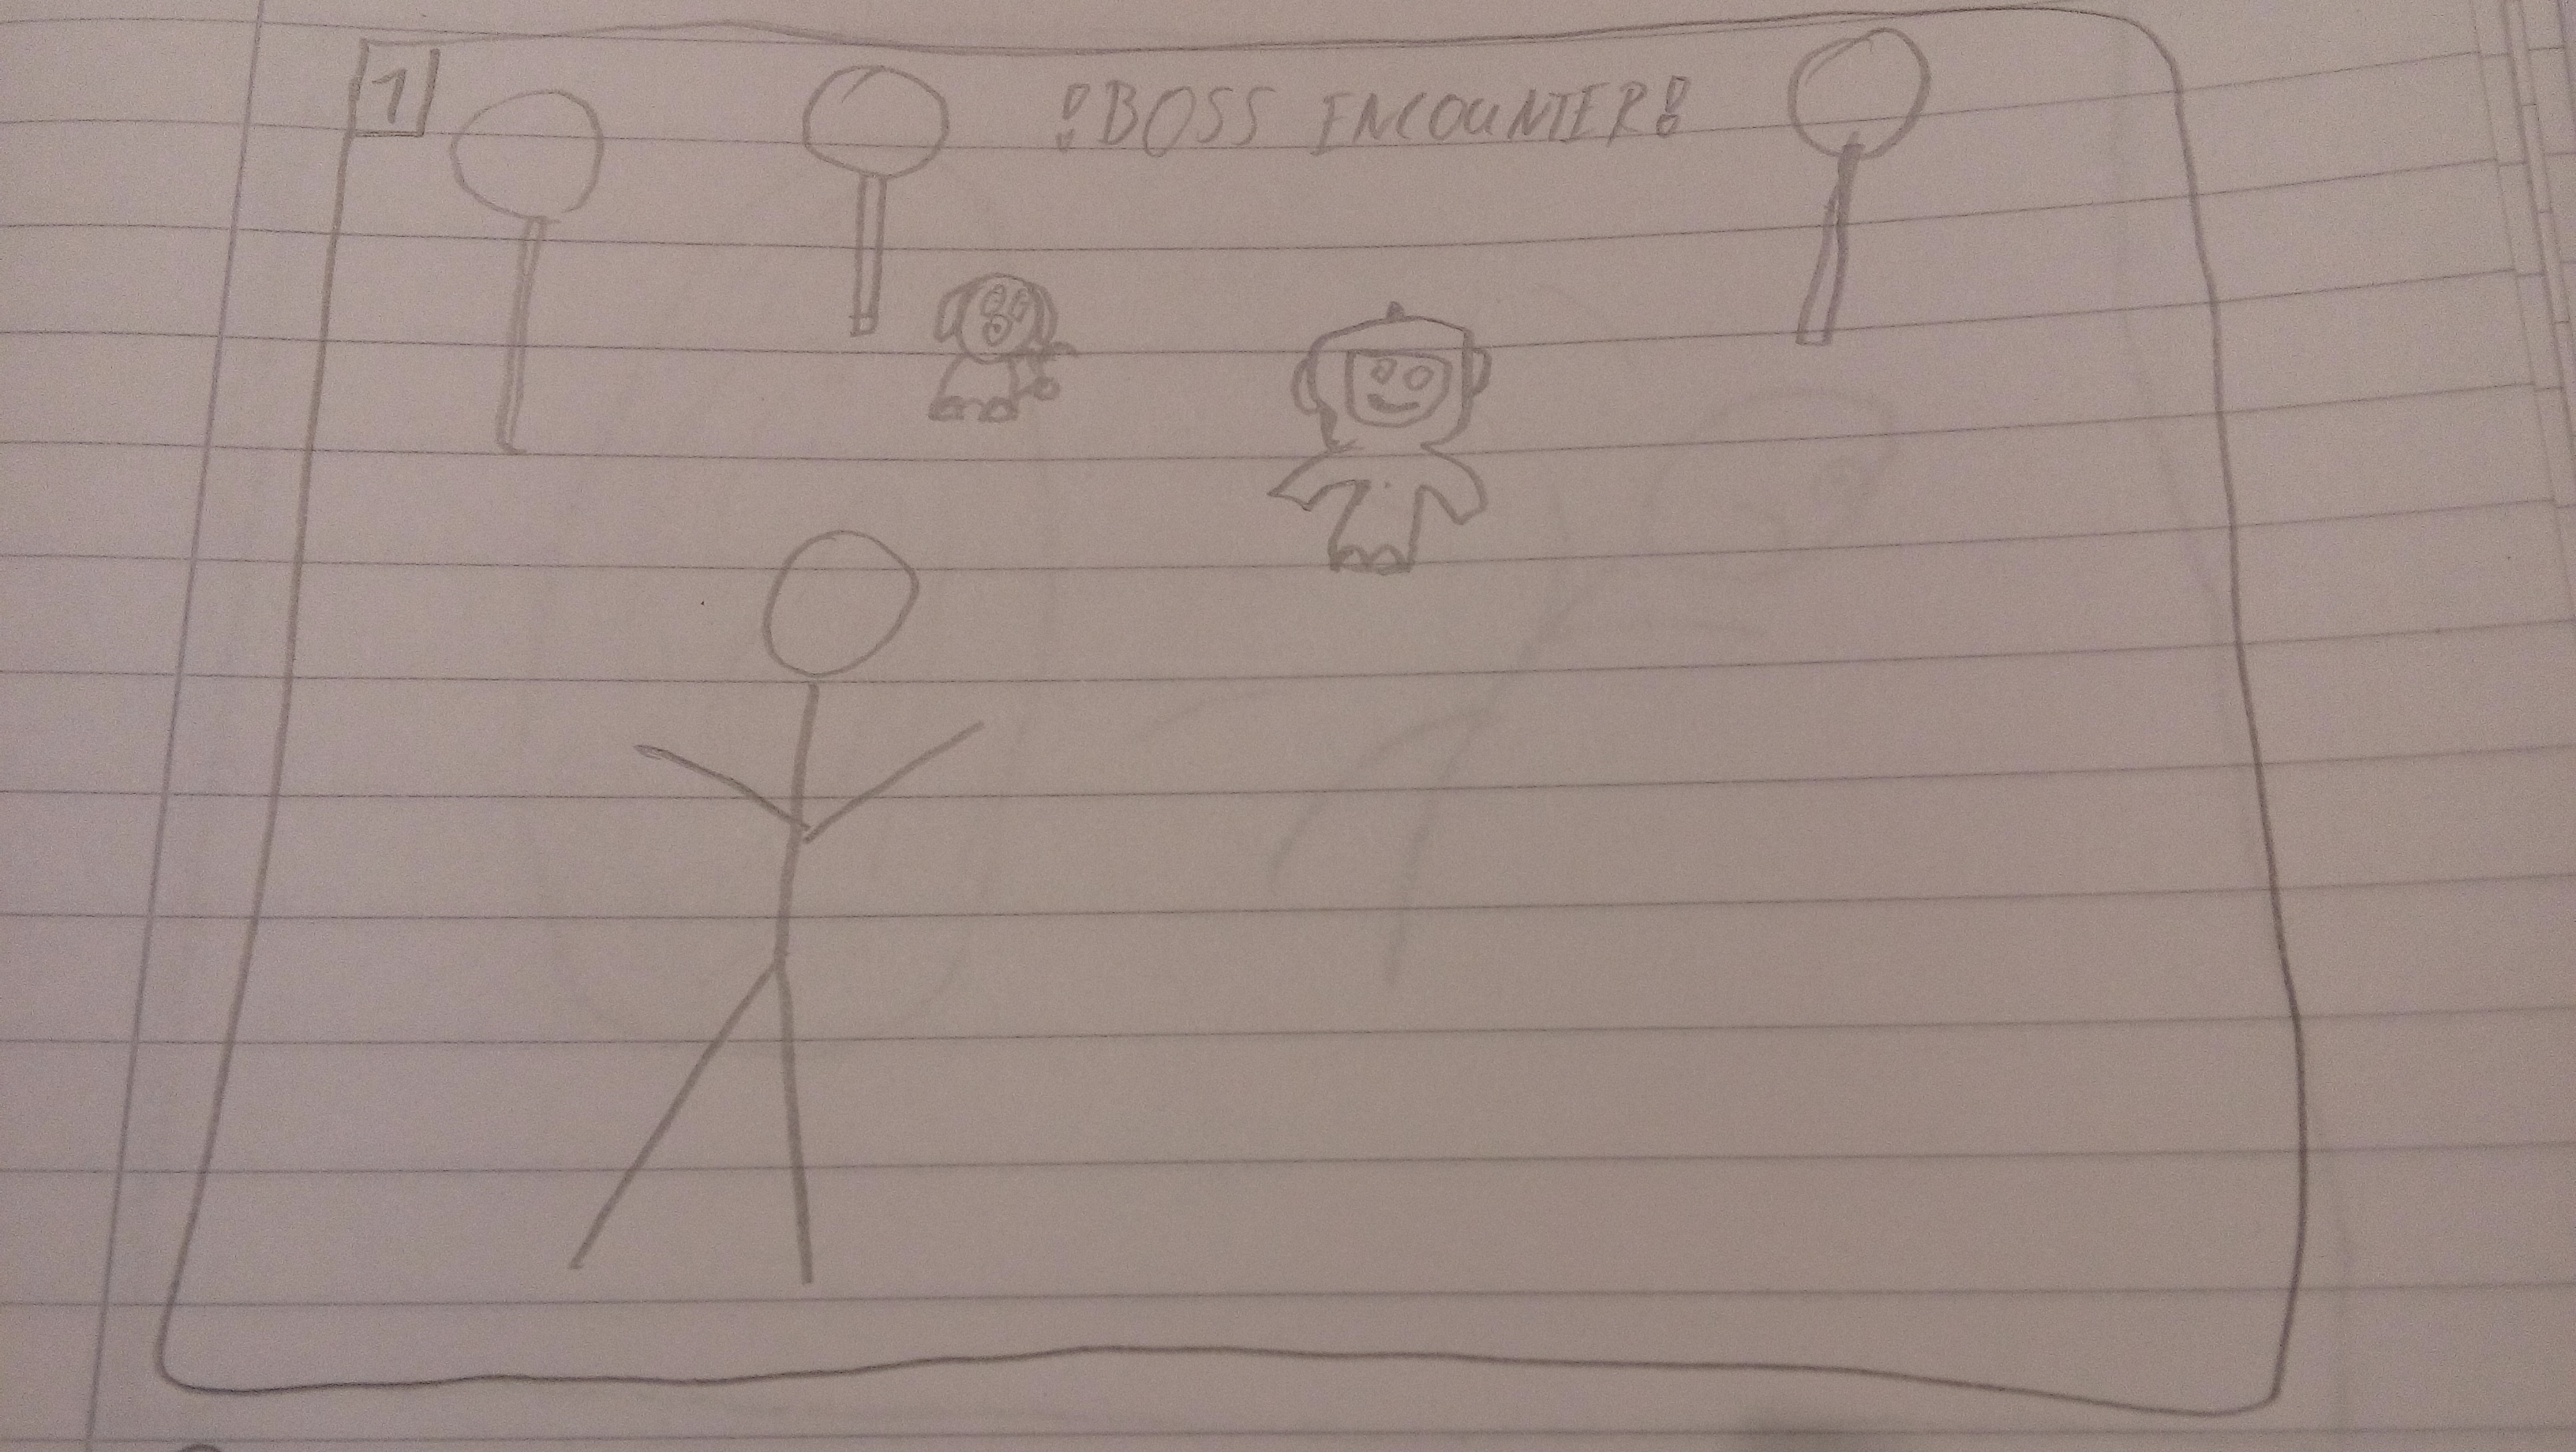 1
!BOSS ENCOUNTER!